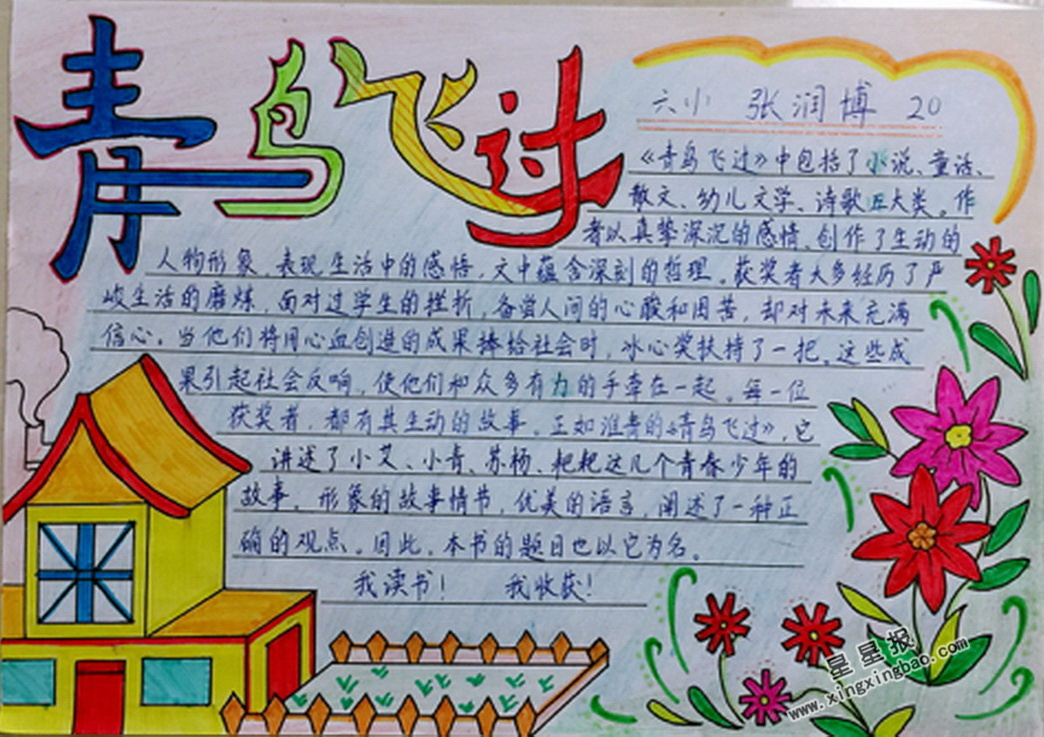 青鸟飞过
六小 张润博 20
《青鸟飞过》中包括了小说、童话、
散文、幼儿文学、诗歌五大类。作
者以真挚深沉的感情、创作了生动的
人物形象，表现生活中的感悟，文中蕴含深刻的哲理。获奖者大多经历了严
峻生活的磨炼，面对过学生的挫折，备尝人间的心酸和困苦，却对未来充满
信心。当他们将用心血创造的成果捧给社会时，冰心奖扶持了一把。这些成
果引起社会反响，使他们和众多有力的手牵在一起。每一位
获奖者，都有其生动的故事。正如谁青的《青鸟飞过》，它
讲述了小艾、小青、苏杨、粑粑这几个青春少年的
故事。形象的故事情节，优美的语言，阐述了一种正
确的观点。因此，本书的题目也以它为名。
我读书！ 我收获！
星星报
www.xingxingbao.com